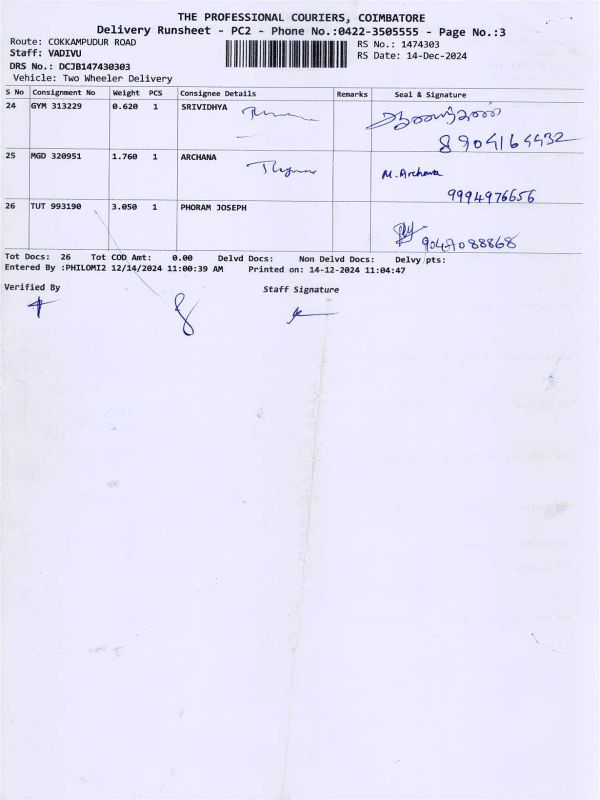 THE PROFESSIONAL COURIERS, COIMBATORE
Delivery Runsheet - PC2 - Phone No.:0422-3505555 - Page No.:3
Route: COKKAMPUDUR ROAD
RS No.: 1474303
Staff: VADIVU
RS Date: 14-Dec-2024
DRS No.: DCJB147430303
Vehicle: Two Wheeler Delivery
S No Consignment No Weight PCS Consignee Details Remarks Seal & Signature
24 GYM 313229 0.620 1 SRIVIDHYA
8904164432
25 MGD 320951 1.760 1 ARCHANA M. Archana
9994976656
26 TUT 993190 3.050 1 PHORAM JOSEPH
Tot Docs: 26 Tot COD Amt: 0.00 Delvd Docs: Non Delvd Docs: Delvy pts:
Entered By :PHILOMI2 12/14/2024 11:00:39 AM Printed on: 14-12-2024 11:04:47
Verified By Staff Signature